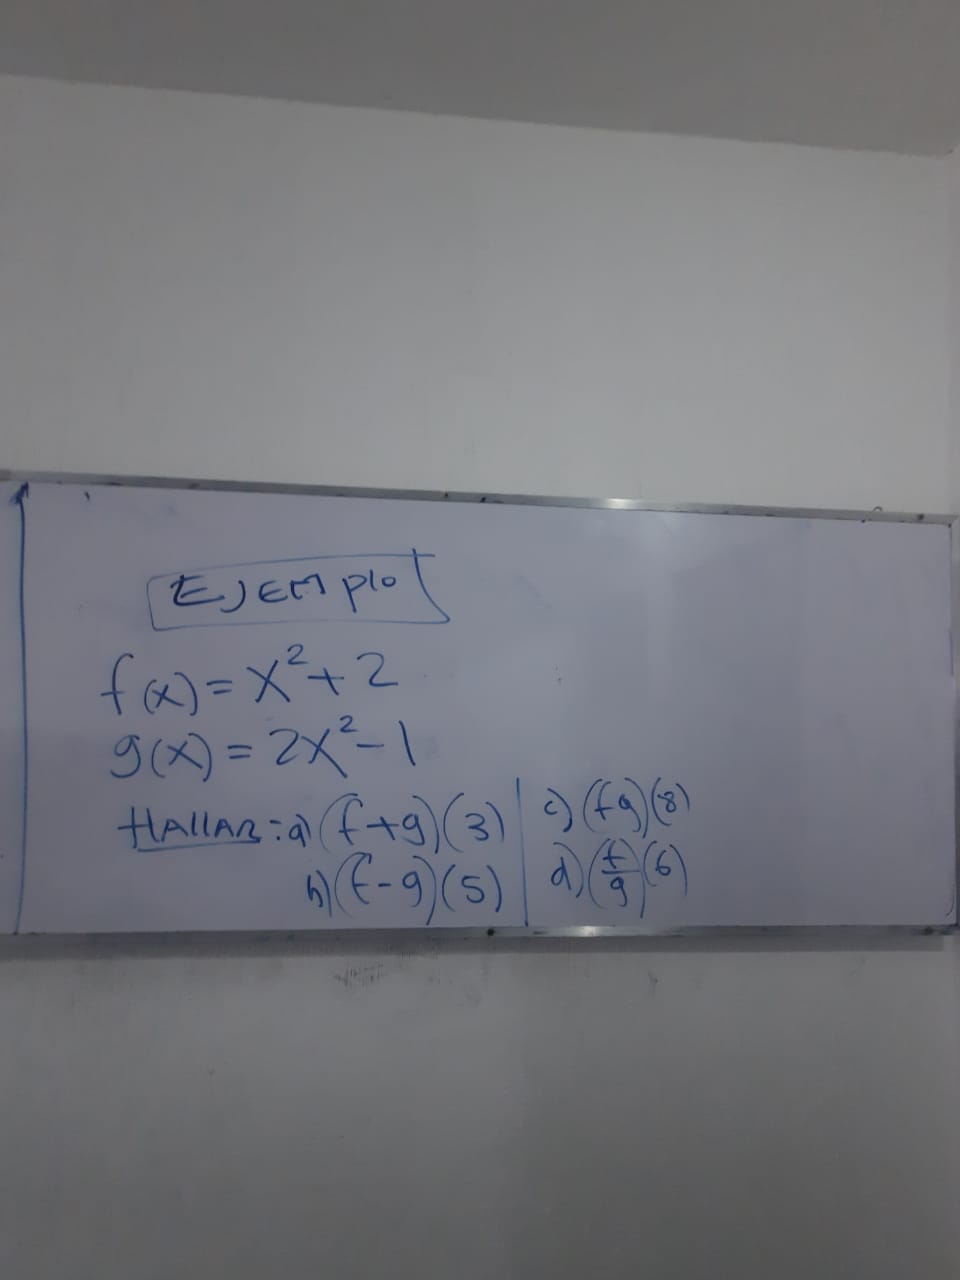 EJEMPlo
f(x)=x²+2
g(x)=2x²-1
HAllAR: a) (f+g)(3)
b) (f-g)(5)
c) (fg)(8)
d) (f/g)(6)